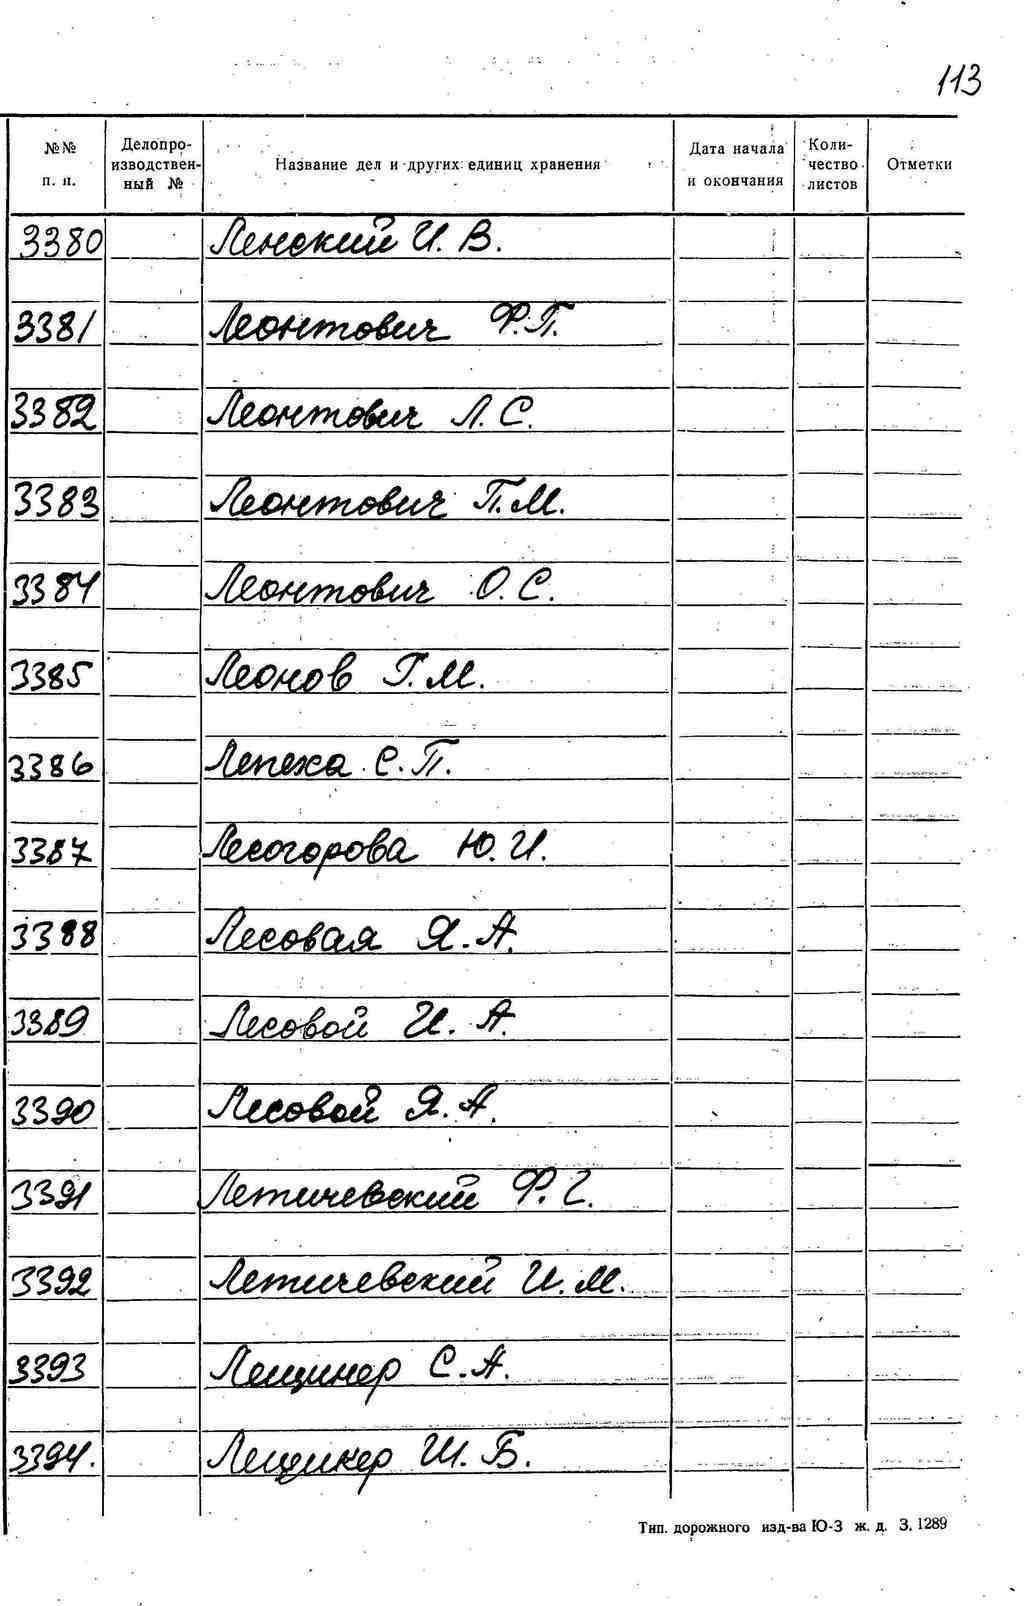 113
№№ п. п. Делопроизводственный № Название дел и других единиц хранения Дата начала и окончания Количество листов Отметки
3380 Ленский И. В.
3381 Леонтович Ф. П.
3382 Леонтович Л. С.
3383 Леонтович П. М.
3384 Леонтович О. С.
3385 Леонов Г. М.
3386 Лепеха С. П.
3387 Лесогорова Ю. И.
3388 Лесовая Я. А.
3389 Лесовой И. А.
3390 Лесовой Я. А.
3391 Летичевский Ф. Г.
3392 Летичевский И. М.
3393 Лещинер С. А.
3394. Лещинер Ш. Б.
Тип. дорожного изд-ва Ю-З ж. д. З. 1289